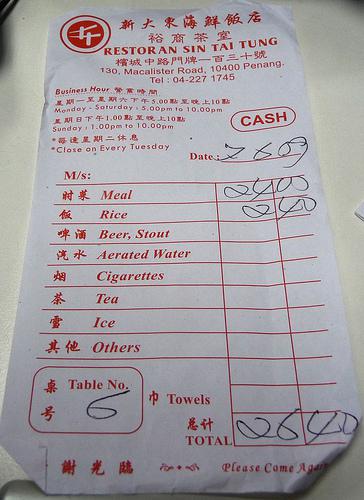 新大東海鮮飯店
裕商茶室
RESTORAN SIN TAI TUNG
檳城中路門牌一百三十號
130, Macalister Road, 10400 Penang.
Tel : 04-227 1745
Business Hour 營業時間
星期一至星期六下午5.00點至晚上10點
Monday - Saturday : 5.00pm to 10.00pm
星期日下午1.00點至晚上10點
Sunday : 1.00pm to 10.00pm
*每逢星期二休息
*Close on Every Tuesday
CASH
Date : 7 6 09
M/s:
时菜 Meal 24 00
飯 Rice 2 40
啤酒 Beer, Stout
汽水 Aerated Water
烟 Cigarettes
茶 Tea
雪 Ice
其他 Others
桌号 Table No. 6
巾 Towels
总计 TOTAL 26 40
謝光臨 Please Come Again